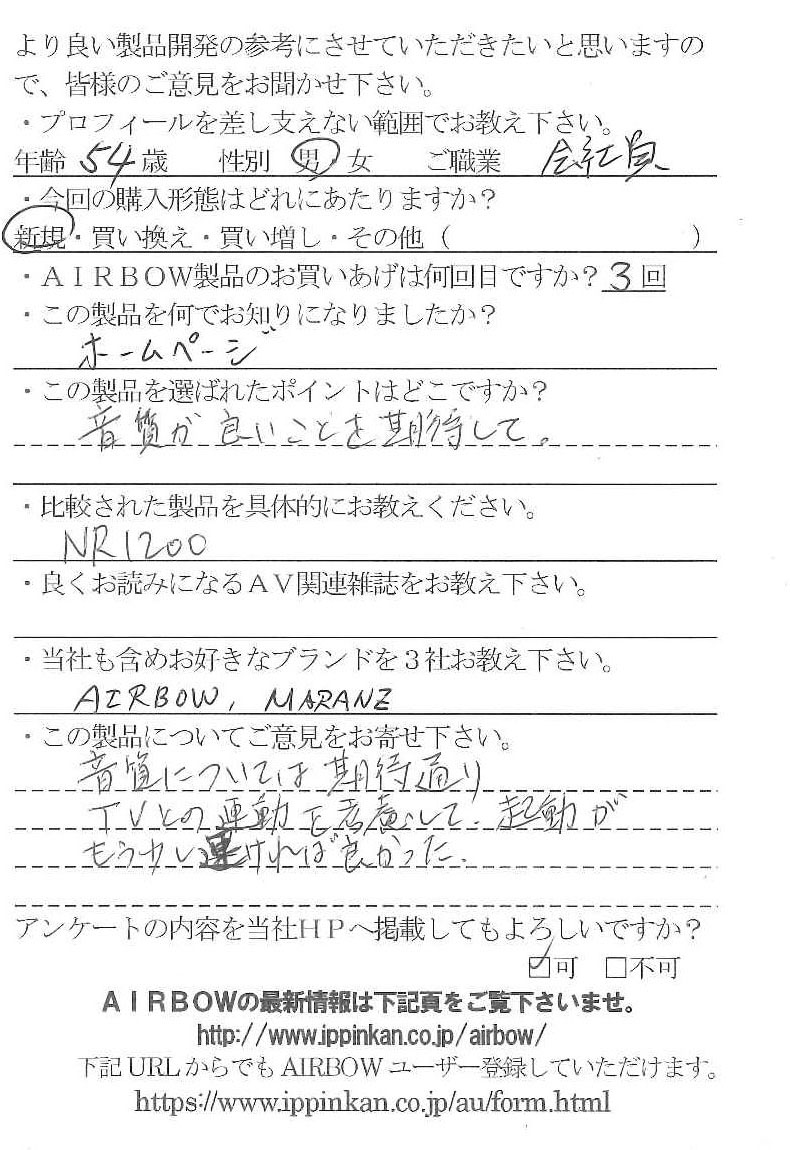 より良い製品開発の参考にさせていただきたいと思いますの
で、皆様のご意見をお聞かせ下さい。
・プロフィールを差し支えない範囲でお教え下さい。
年齢 54 歳 性別 男・女 ご職業 会社員
・今回の購入形態はどれにあたりますか?
新規・買い換え・買い増し・その他( )
・AIRBOW製品のお買いあげは何回目ですか?3回
・この製品を何でお知りになりましたか?
ホームページ
・この製品を選ばれたポイントはどこですか?
音質が良いことを期待して。
・比較された製品を具体的にお教えください。
NR1200
・良くお読みになるAV関連雑誌をお教え下さい。
・当社も含めお好きなブランドを3社お教え下さい。
AIRBOW, MARANZ
・この製品についてご意見をお寄せ下さい。
音質については期待通り
TVとの連動を考慮して、起動が
もう少し速ければ良かった.
アンケートの内容を当社HPへ掲載してもよろしいですか?
☑可 □不可
AIRBOWの最新情報は下記頁をご覧下さいませ。
http://www.ippinkan.co.jp/airbow/
下記URLからでもAIRBOWユーザー登録していただけます。
https://www.ippinkan.co.jp/au/form.html